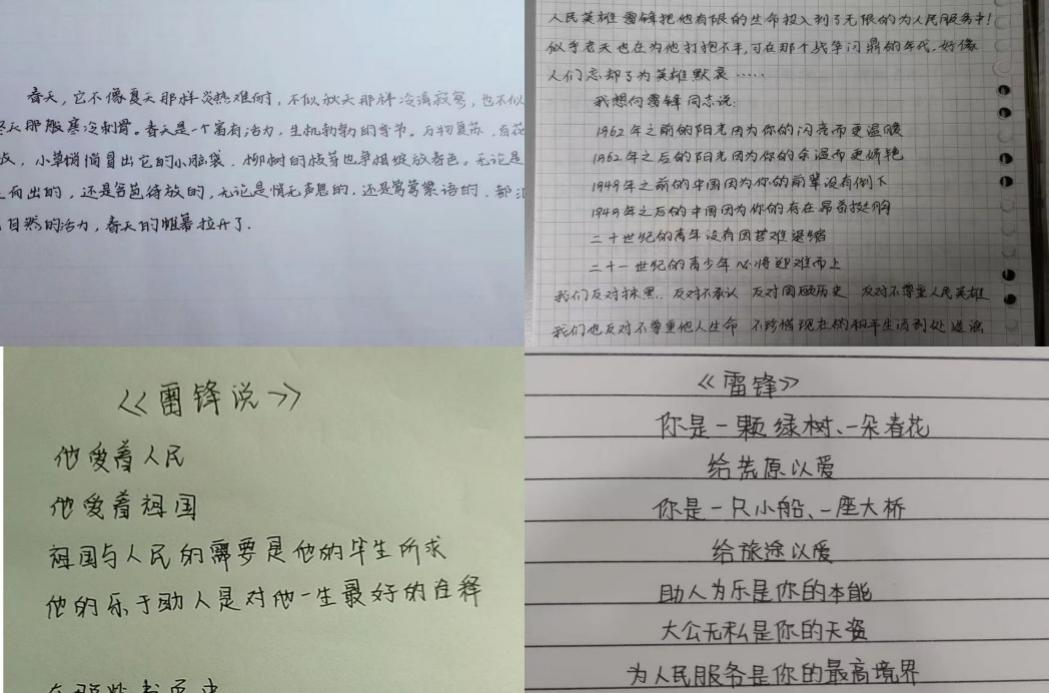 春天，它不像夏天那样炎热难耐，不似秋天那样冷清寂寞，也不似
冬天那般寒冷刺骨。春天是一个富有活力，生机勃勃的季节。万物复苏，百花
小草悄悄冒出它的小脑袋，柳树的枝芽也争相绽放春色。无论是
而出的，还是含苞待放的，无论是悄无声息的，还是莺莺絮语的，都
自然的活力，春天的帷幕拉开了.
人民英雄雷锋把他有限的生命投入到了无限的为人民服务中！
似乎老天也在为他打抱不平，可在那个战争闪鼎的年代，好像
人们忘却了为英雄默哀……
我想向雷锋同志说：
1962年之前的阳光因为你的闪亮而更温暖
1962年之后的阳光因为你的余温而更娇艳
1949年之前的中国因为你的前辈没有倒下
1949年之后的中国因为你的存在昂首挺胸
二十世纪的青年没有因苦难退缩
二十一世纪的青少年必将迎难而上
我们反对抹黑，反对不承认 反对罔顾历史 反对不尊重人民英雄
我们也反对不尊重他人生命 不珍惜现在的和平生活到处造谣
《雷锋说》
他爱着人民
他爱着祖国
祖国与人民的需要是他的毕生所求
他的乐于助人是对他一生最好的诠释
《雷锋》
你是一颗绿树、一朵春花
给荒原以爱
你是一只小船、一座大桥
给旅途以爱
助人为乐是你的本能
大公无私是你的天资
为人民服务是你的最高境界